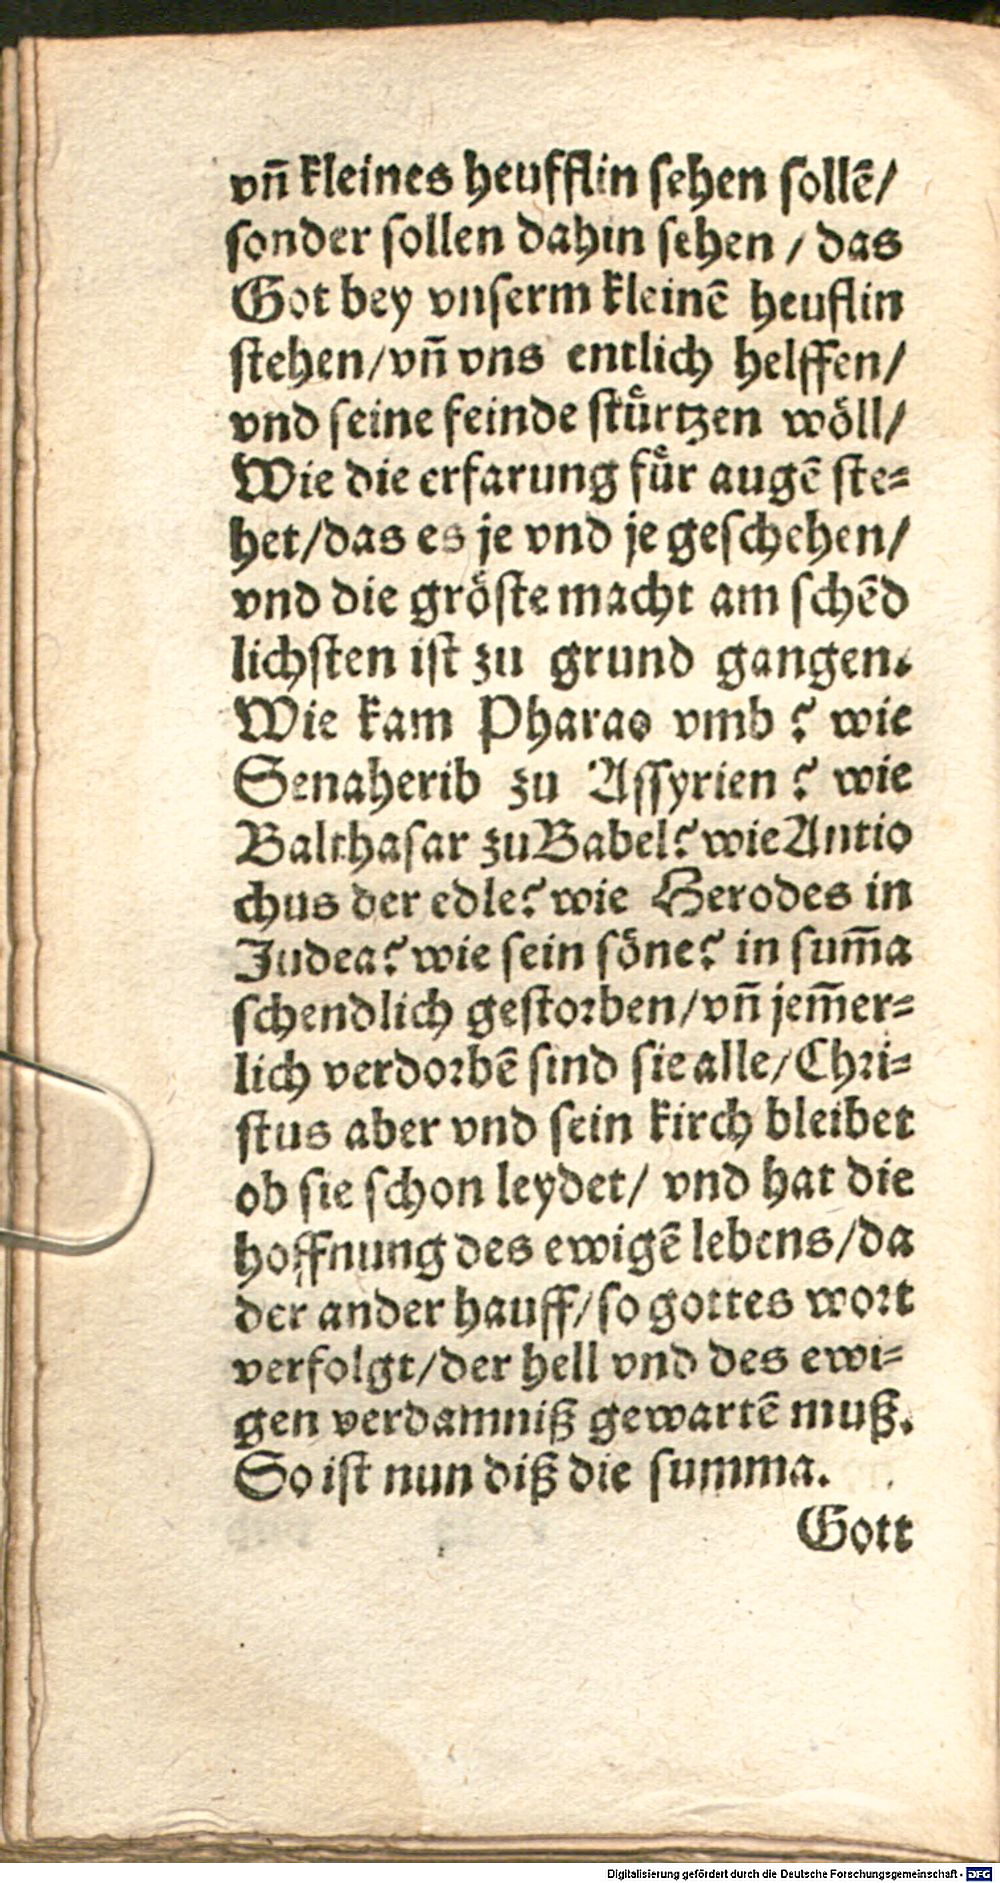 vñ kleines heufflin sehen sollẽ/
sonder sollen dahin sehen / das
Got bey vnserm kleinẽ heuflin
stehen/vñ vns entlich helffen/
vnd seine feinde stuͤrtzen woͤll/
Wie die erfarung fuͤr augẽ ste⸗
het/das es je vnd je geschehen/
vnd die groͤste macht am schẽd
lichsten ist zu grund gangen.
Wie kam Pharao vmb ? wie
Senaherib zu Assyrien ? wie
Balthasar zu Babel? wie Antio
chus der edle? wie Herodes in
Judea? wie sein soͤne? in sum̃a
schendlich gestorben/vñ jem̃er⸗
lich verdorbẽ sind sie alle/Chri⸗
stus aber vnd sein kirch bleibet
ob sie schon leydet/ vnd hat die
hoffnung des ewigẽ lebens/da
der ander hauff/so gottes wort
verfolgt/der hell vnd des ewi⸗
gen verdamniß gewartẽ muß.
So ist nun diß die summa.
Gott
Digitalisierung gefördert durch die Deutsche Forschungsgemeinschaft - DFG